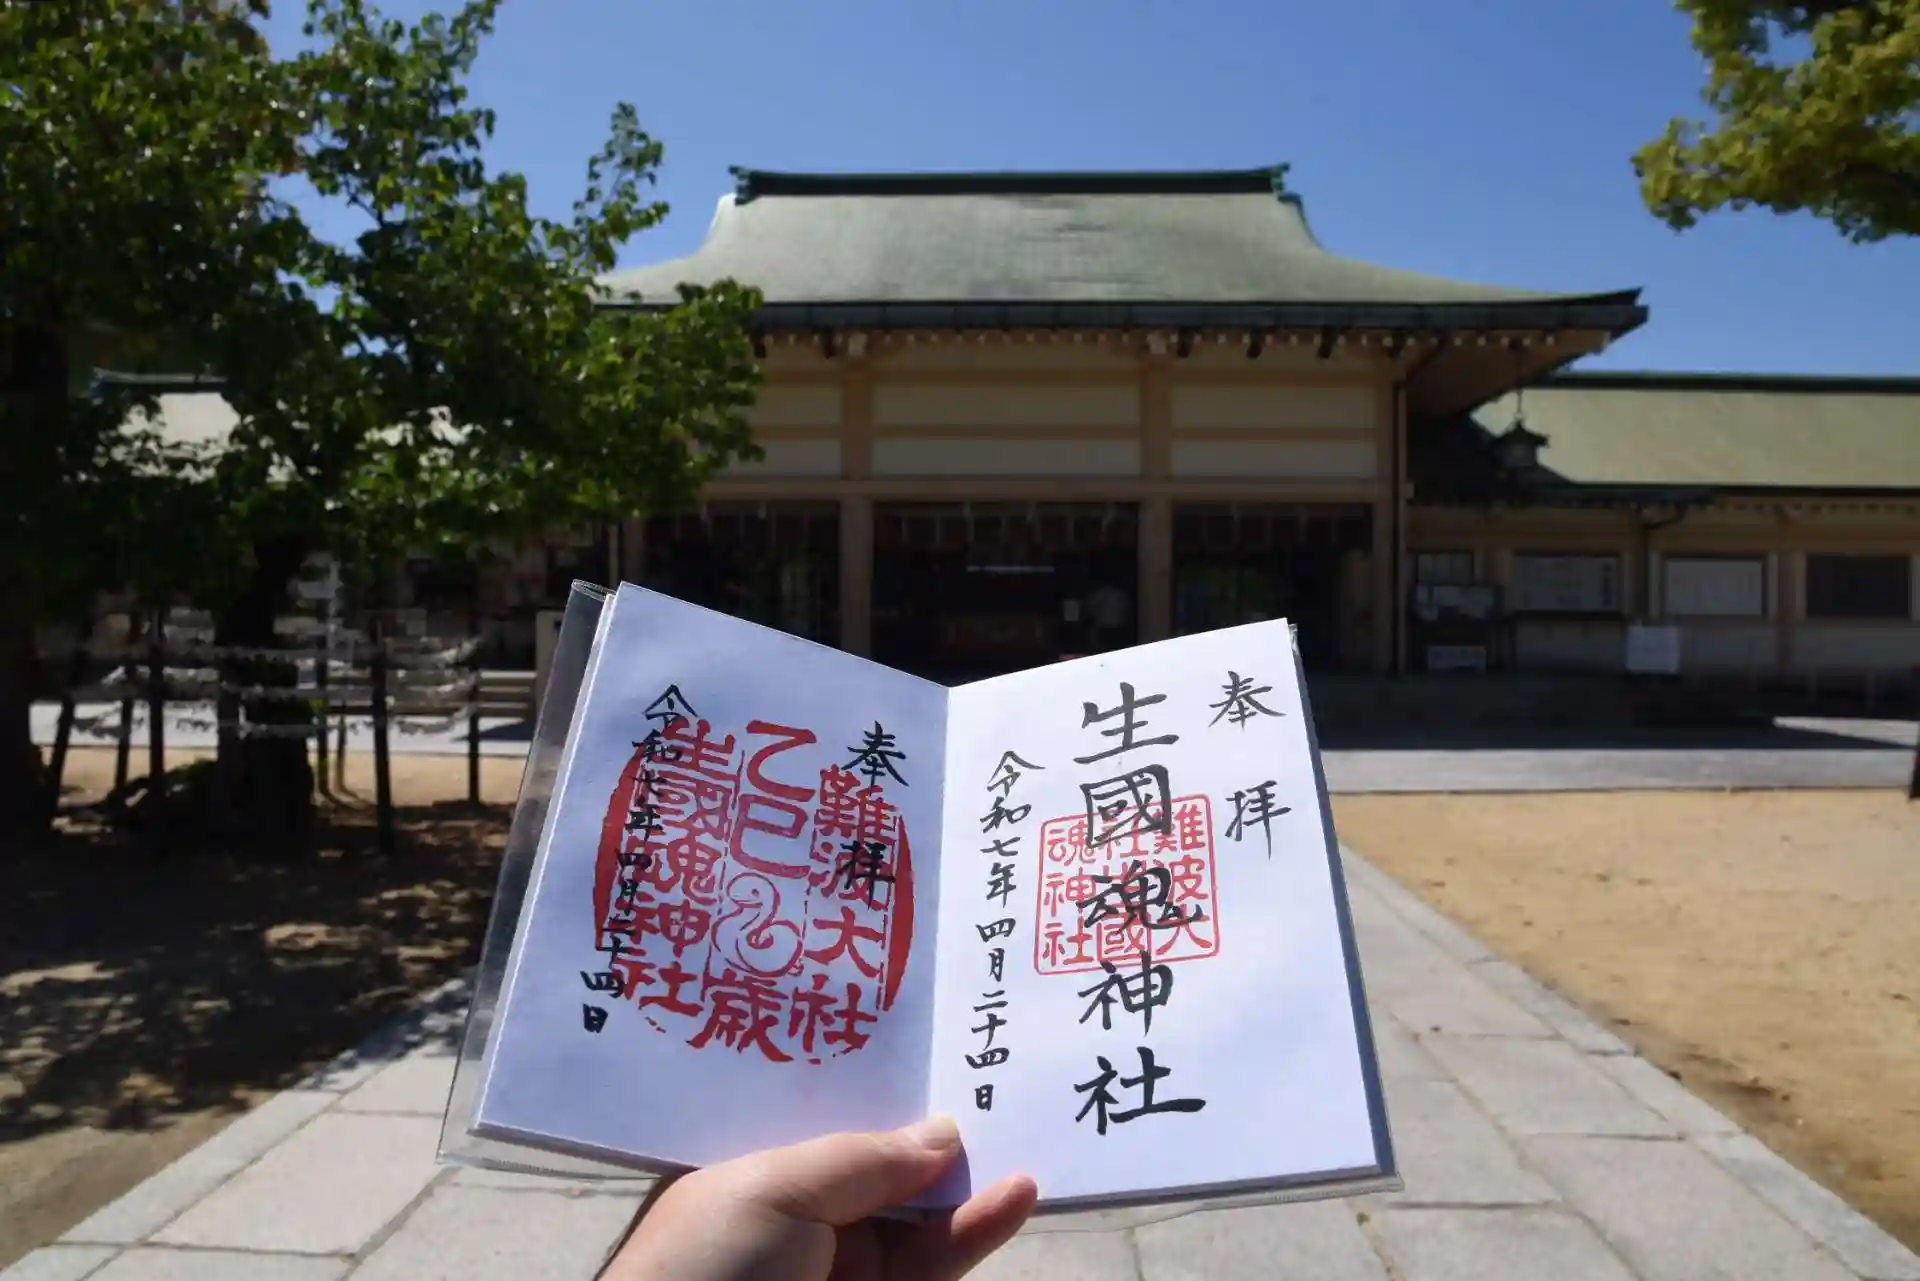 奉拝
生國魂神社
難波大
社生國
魂神社
令和七年四月二十四日
奉拝
難波大社
乙巳歳
生國魂神社
令和七年四月二十四日